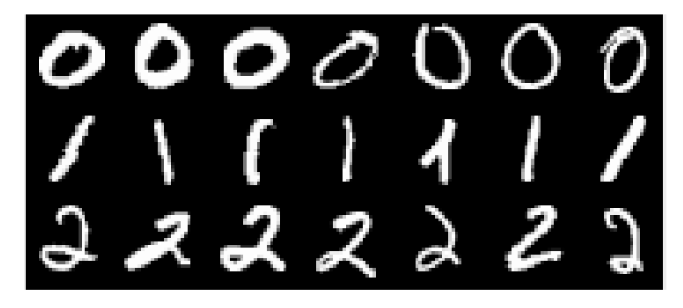 0 0 0 0 0 0 0
1 1 1 1 1 1 1
2 2 2 2 2 2 2